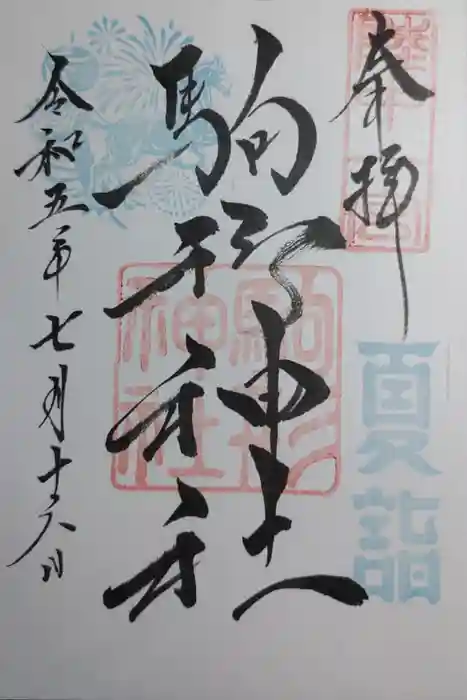 奉拝
夏詣
駒形神社
駒形
神社
令和五年七月十六日